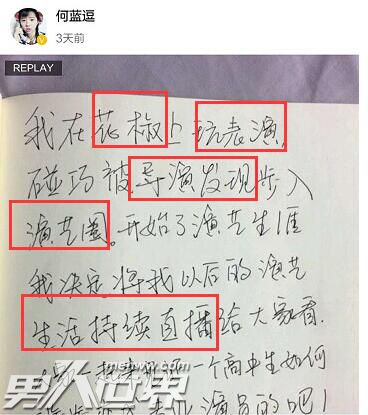 何蓝逗
3天前
REPLAY
我在花椒上玩表演,
碰巧被导演发现步入
演艺圈。开始了演艺生涯
我决定将我以后的演艺
生活持续直播给大家看.
一个高中生如何
演员的吧!
男人世界